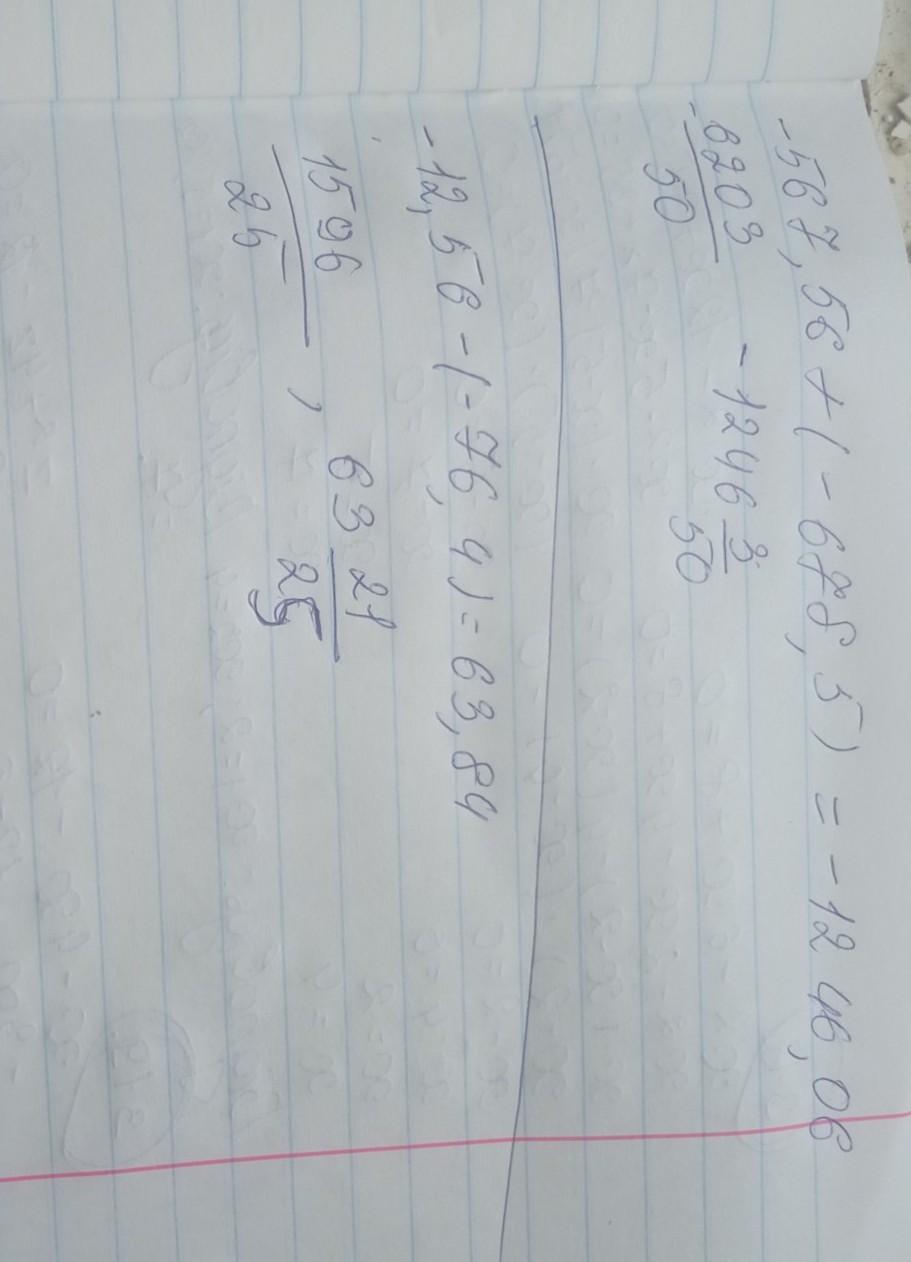 -567,56+(-678,5)=-1246,06
-6203/50 -1246 3/50
-12,56-(-76,4)=63,84
1596/25, 63 21/25